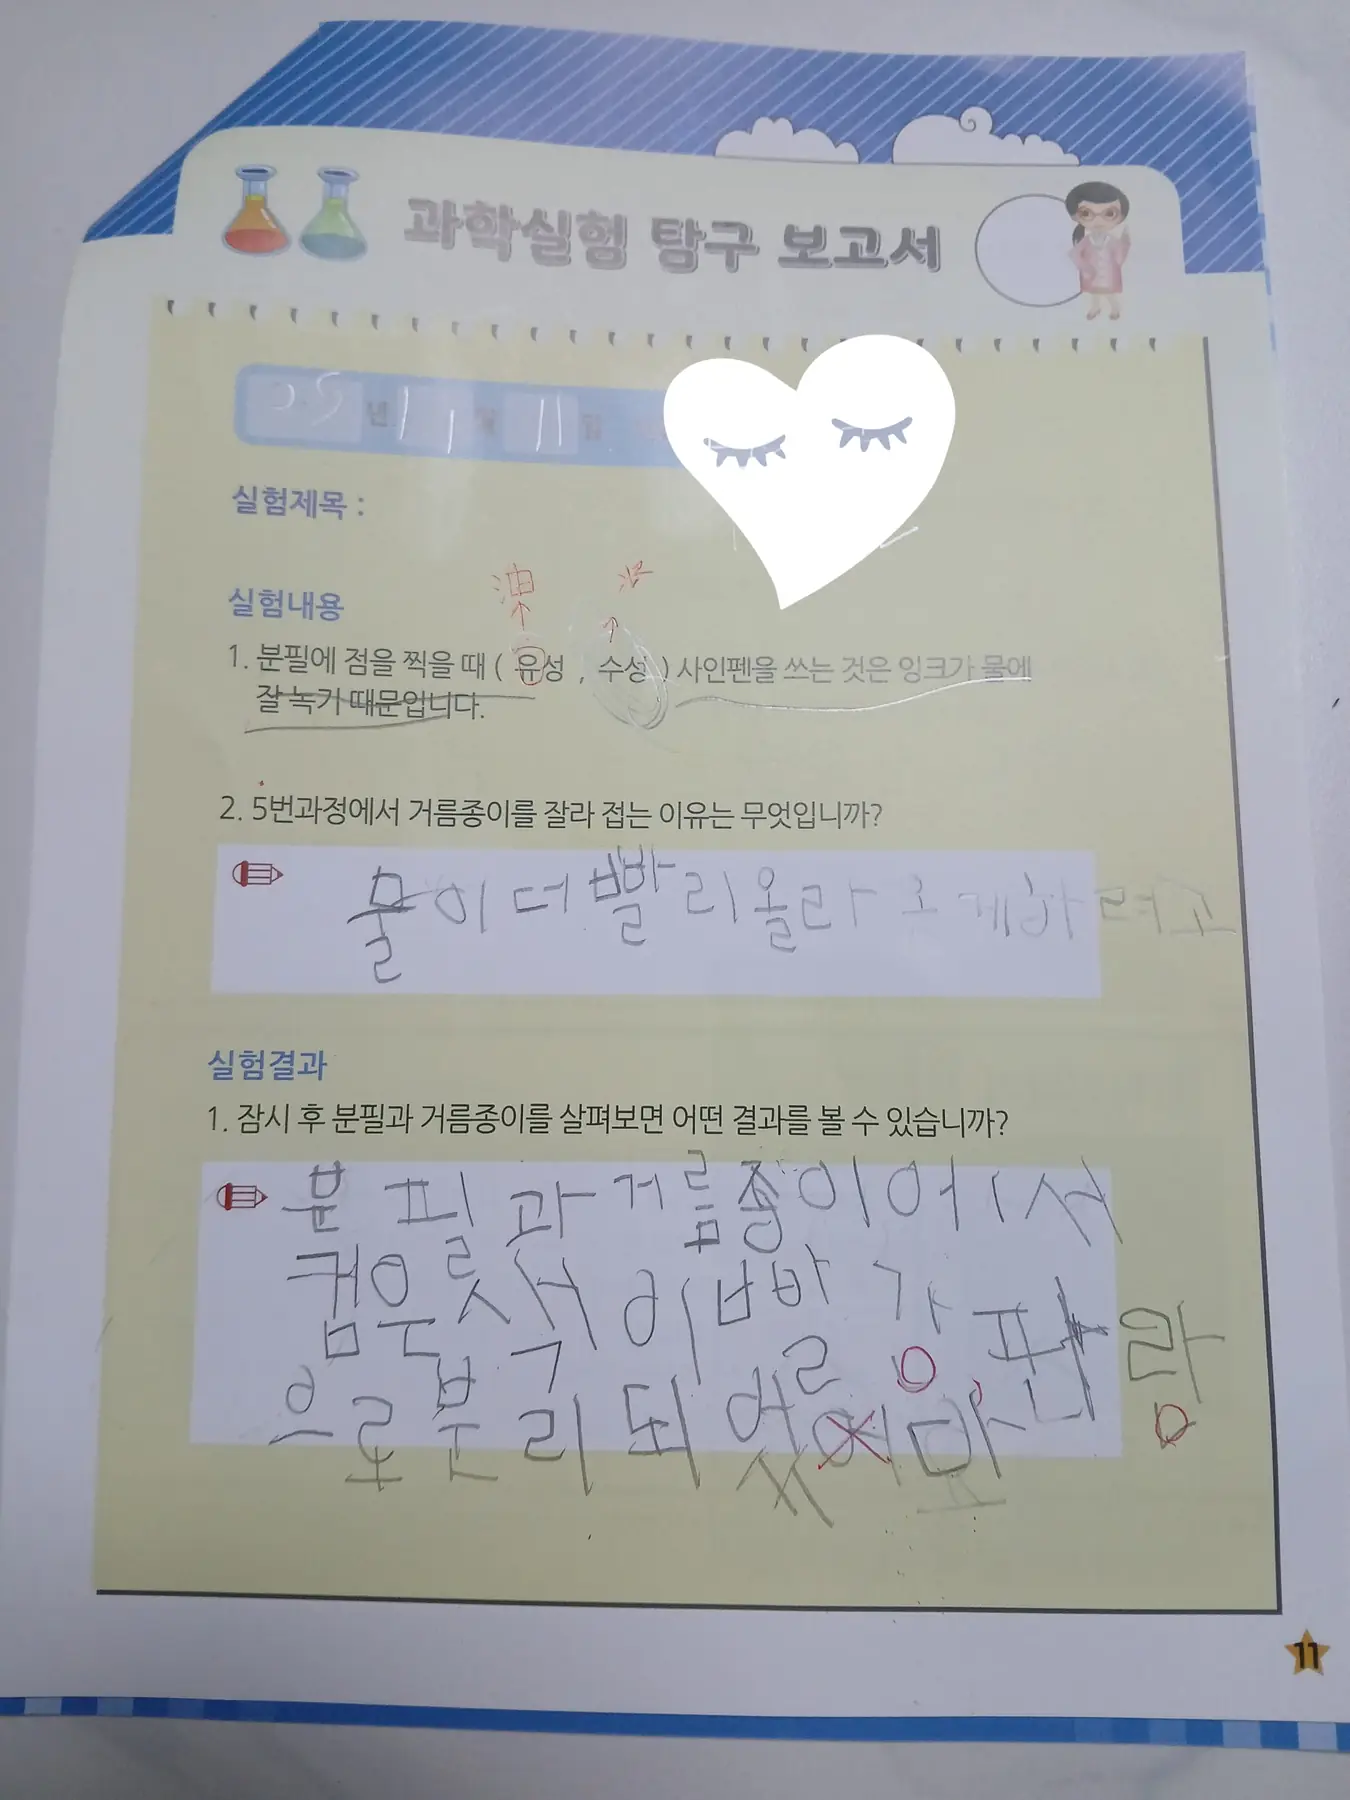 과학실험 탐구 보고서
년 월 11 일
실험제목 :
실험내용
油 水
1. 분필에 점을 찍을 때 ( 유성 , 수성 ) 사인펜을 쓰는 것은 잉크가 물에
잘 녹기 때문입니다.
2. 5번과정에서 거름종이를 잘라 접는 이유는 무엇입니까?
물이더빨리올라오게하려고
실험결과
1. 잠시 후 분필과 거름종이를 살펴보면 어떤 결과를 볼 수 있습니까?
분필과거름종이에서
검은색이빨강파랑
으로분리되었
11